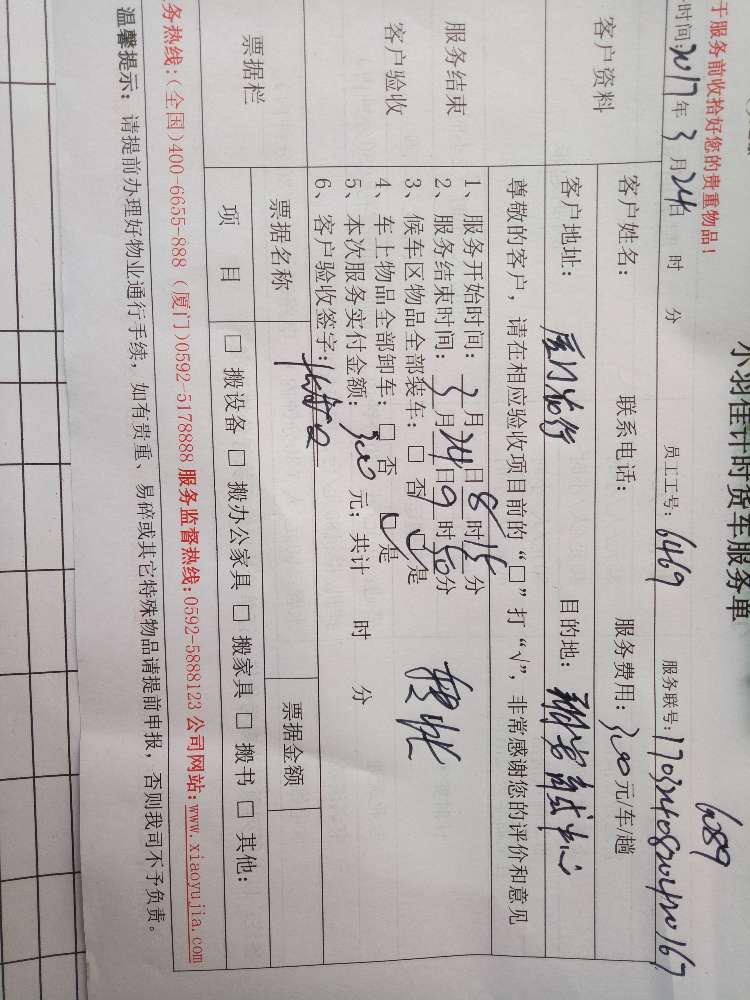 小羽佳计时货车服务单
6289
于服务前收拾好您的贵重物品!
时间:2017年3月24日 时 分 员工工号:6469 服务联号:
客户资料
客户姓名: 联系电话: 服务费用:300元/车/趟
客户地址: 目的地:
服务结束
客户验收
尊敬的客户,请在相应验收项目前的“□”打“√”,非常感谢您的评价和意见
1、服务开始时间:3月24日8时15分
2、服务结束时间:3月24日9时50分
3、候车区物品全部装车:□否 □是
4、车上物品全部卸车:□否 □是
5、本次服务实付金额:300元;共计 时 分
6、客户验收签字:
票据栏
票据名称 票据金额
项目 □搬设备 □搬办公家具 □搬家具 □搬书 □其他:
务热线:(全国)400-6655-888 (厦门)0592-5178888 服务监督热线:0592-5888123 公司网站:www.xiaoyujia.com
温馨提示:请提前办理好物业通行手续,如有贵重、易碎或其它特殊物品请提前申报,否则我司不予负责。